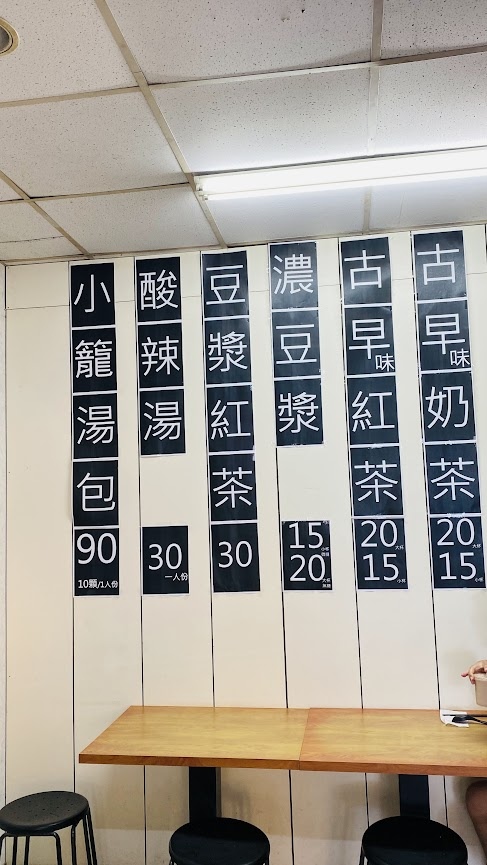 古早味奶茶
20大杯
15小杯
古早味紅茶
20大杯
15小杯
濃豆漿
15小杯
20大杯
豆漿紅茶
30
酸辣湯
30
一人份
小籠湯包
90
10顆/1人份